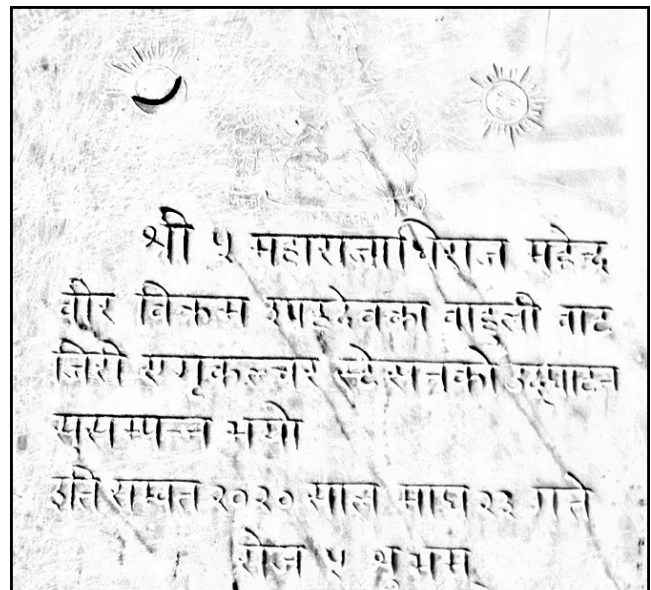 श्री ५ महाराजाधिराज महेन्द्र
वीर विक्रम शाहदेवका वाहुली वाट
जिरी एगृकल्चर स्टेसनको उद्घाटन
सुसम्पन्न भयो
इति सम्वत २०२० साल माघ २३ गते
रोज ५ शुभम्